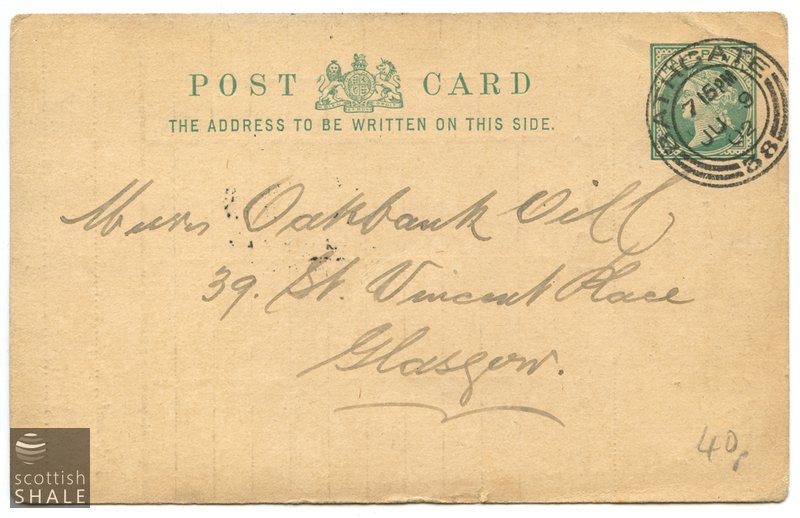 POST CARD
THE ADDRESS TO BE WRITTEN ON THIS SIDE.
HALFPENNY
BATHGATE
7 15 PM
JU 9
02
88
Messrs Oakbank Oill
39. St. Vincent Place
Glasgow.
40p
scottish
SHALE